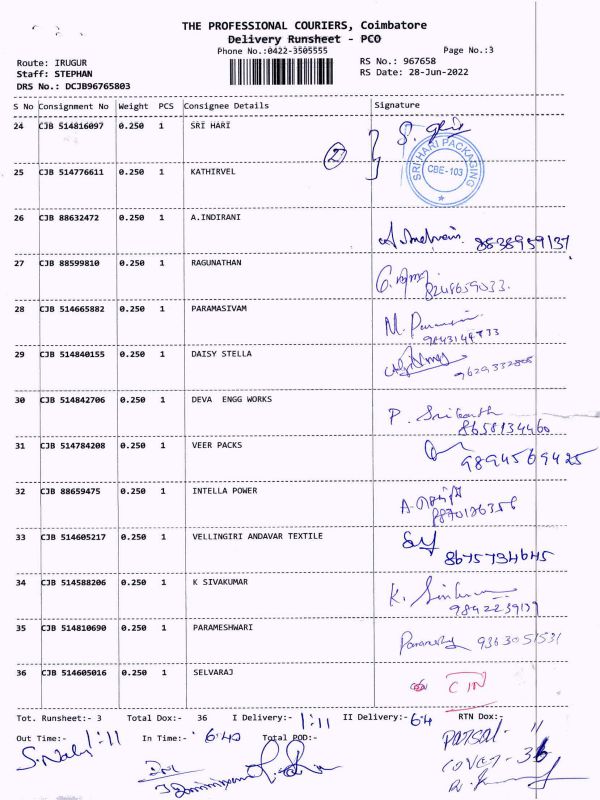 THE PROFESSIONAL COURIERS, Coimbatore
Delivery Runsheet - PCO
Phone No.:0422-3505555
Page No.:3
Route: IRUGUR
RS No.: 967658
Staff: STEPHAN
RS Date: 28-Jun-2022
DRS No.: DCJB96765803
S No Consignment No Weight PCS Consignee Details Signature
24 CJB 514816097 0.250 1 SRI HARI
SRI HARI PACKAGING CBE-103
2
25 CJB 514776611 0.250 1 KATHIRVEL
26 CJB 88632472 0.250 1 A.INDIRANI
8838959137
27 CJB 88599810 0.250 1 RAGUNATHAN
8248659033.
28 CJB 514665882 0.250 1 PARAMASIVAM
9843144833
29 CJB 514840155 0.250 1 DAISY STELLA
9629332805
30 CJB 514842706 0.250 1 DEVA ENGG WORKS
P. Srikanth
8658134460
31 CJB 514784208 0.250 1 VEER PACKS
9894569425
32 CJB 88659475 0.250 1 INTELLA POWER
8870126356
33 CJB 514605217 0.250 1 VELLINGIRI ANDAVAR TEXTILE
8675794645
34 CJB 514588206 0.250 1 K SIVAKUMAR
35 CJB 514810690 0.250 1 PARAMESHWARI
9363051531
36 CJB 514605016 0.250 1 SELVARAJ
CIN
Tot. Runsheet:- 3 Total Dox:- 36 I Delivery:- 1:11 II Delivery:- 6:4 RTN Dox:-
Out Time:- 1:11 In Time:- 6:40 Total POD:-
Parsal - 11
cover - 36